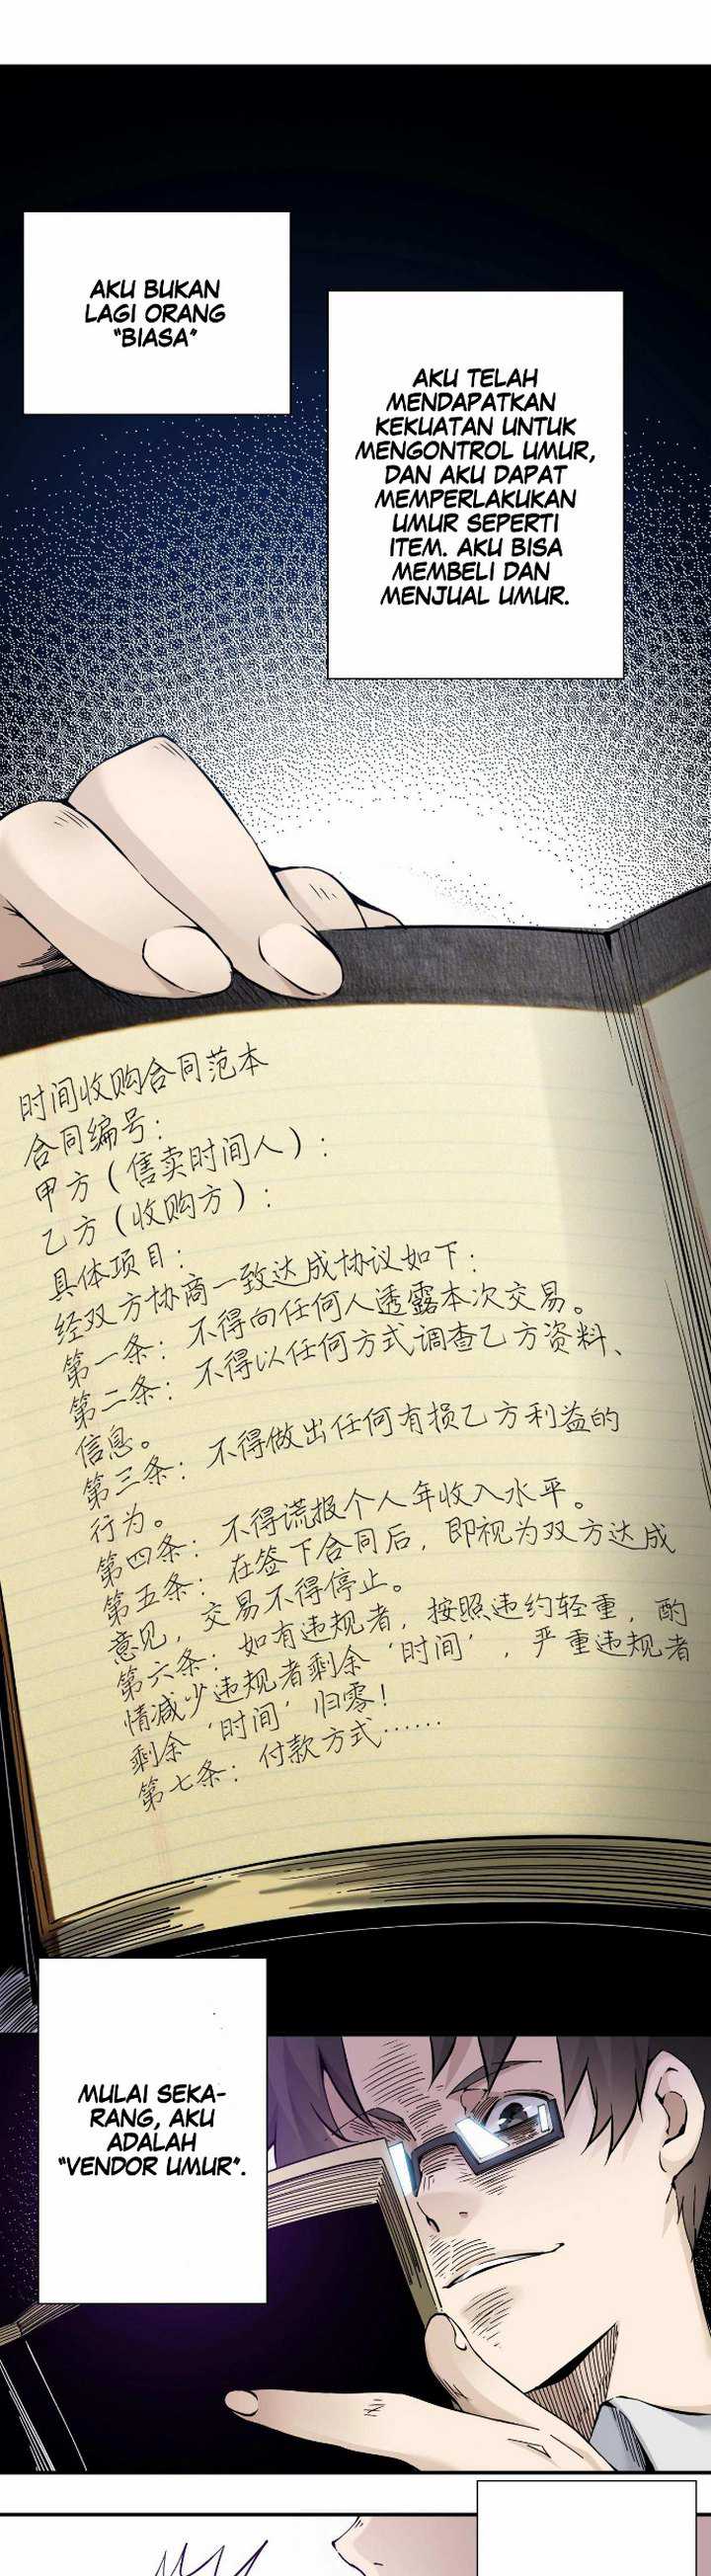 AKU BUKAN
LAGI ORANG
"BIASA"
AKU TELAH
MENDAPATKAN
KEKUATAN UNTUK
MENGONTROL UMUR,
DAN AKU DAPAT
MEMPERLAKUKAN
UMUR SEPERTI
ITEM. AKU BISA
MEMBELI DAN
MENJUAL UMUR.
时间收购合同范本
合同编号：
甲方（售卖时间人）：
乙方（收购方）：
具体项目：
经双方协商一致达成协议如下：
第一条：不得向任何人透露本次交易。
第二条：不得以任何方式调查乙方资料、
信息。
第三条：不得做出任何有损乙方利益的
行为。
第四条：不得谎报个人年收入水平。
第五条：在签下合同后，即视为双方达成
意见，交易不得停止。
第六条：如有违规者，按照违约轻重，酌
情减少违规者剩余‘时间’，严重违规者
剩余‘时间’归零！
第七条：付款方式……
MULAI SEKA-
RANG, AKU
ADALAH
"VENDOR UMUR".